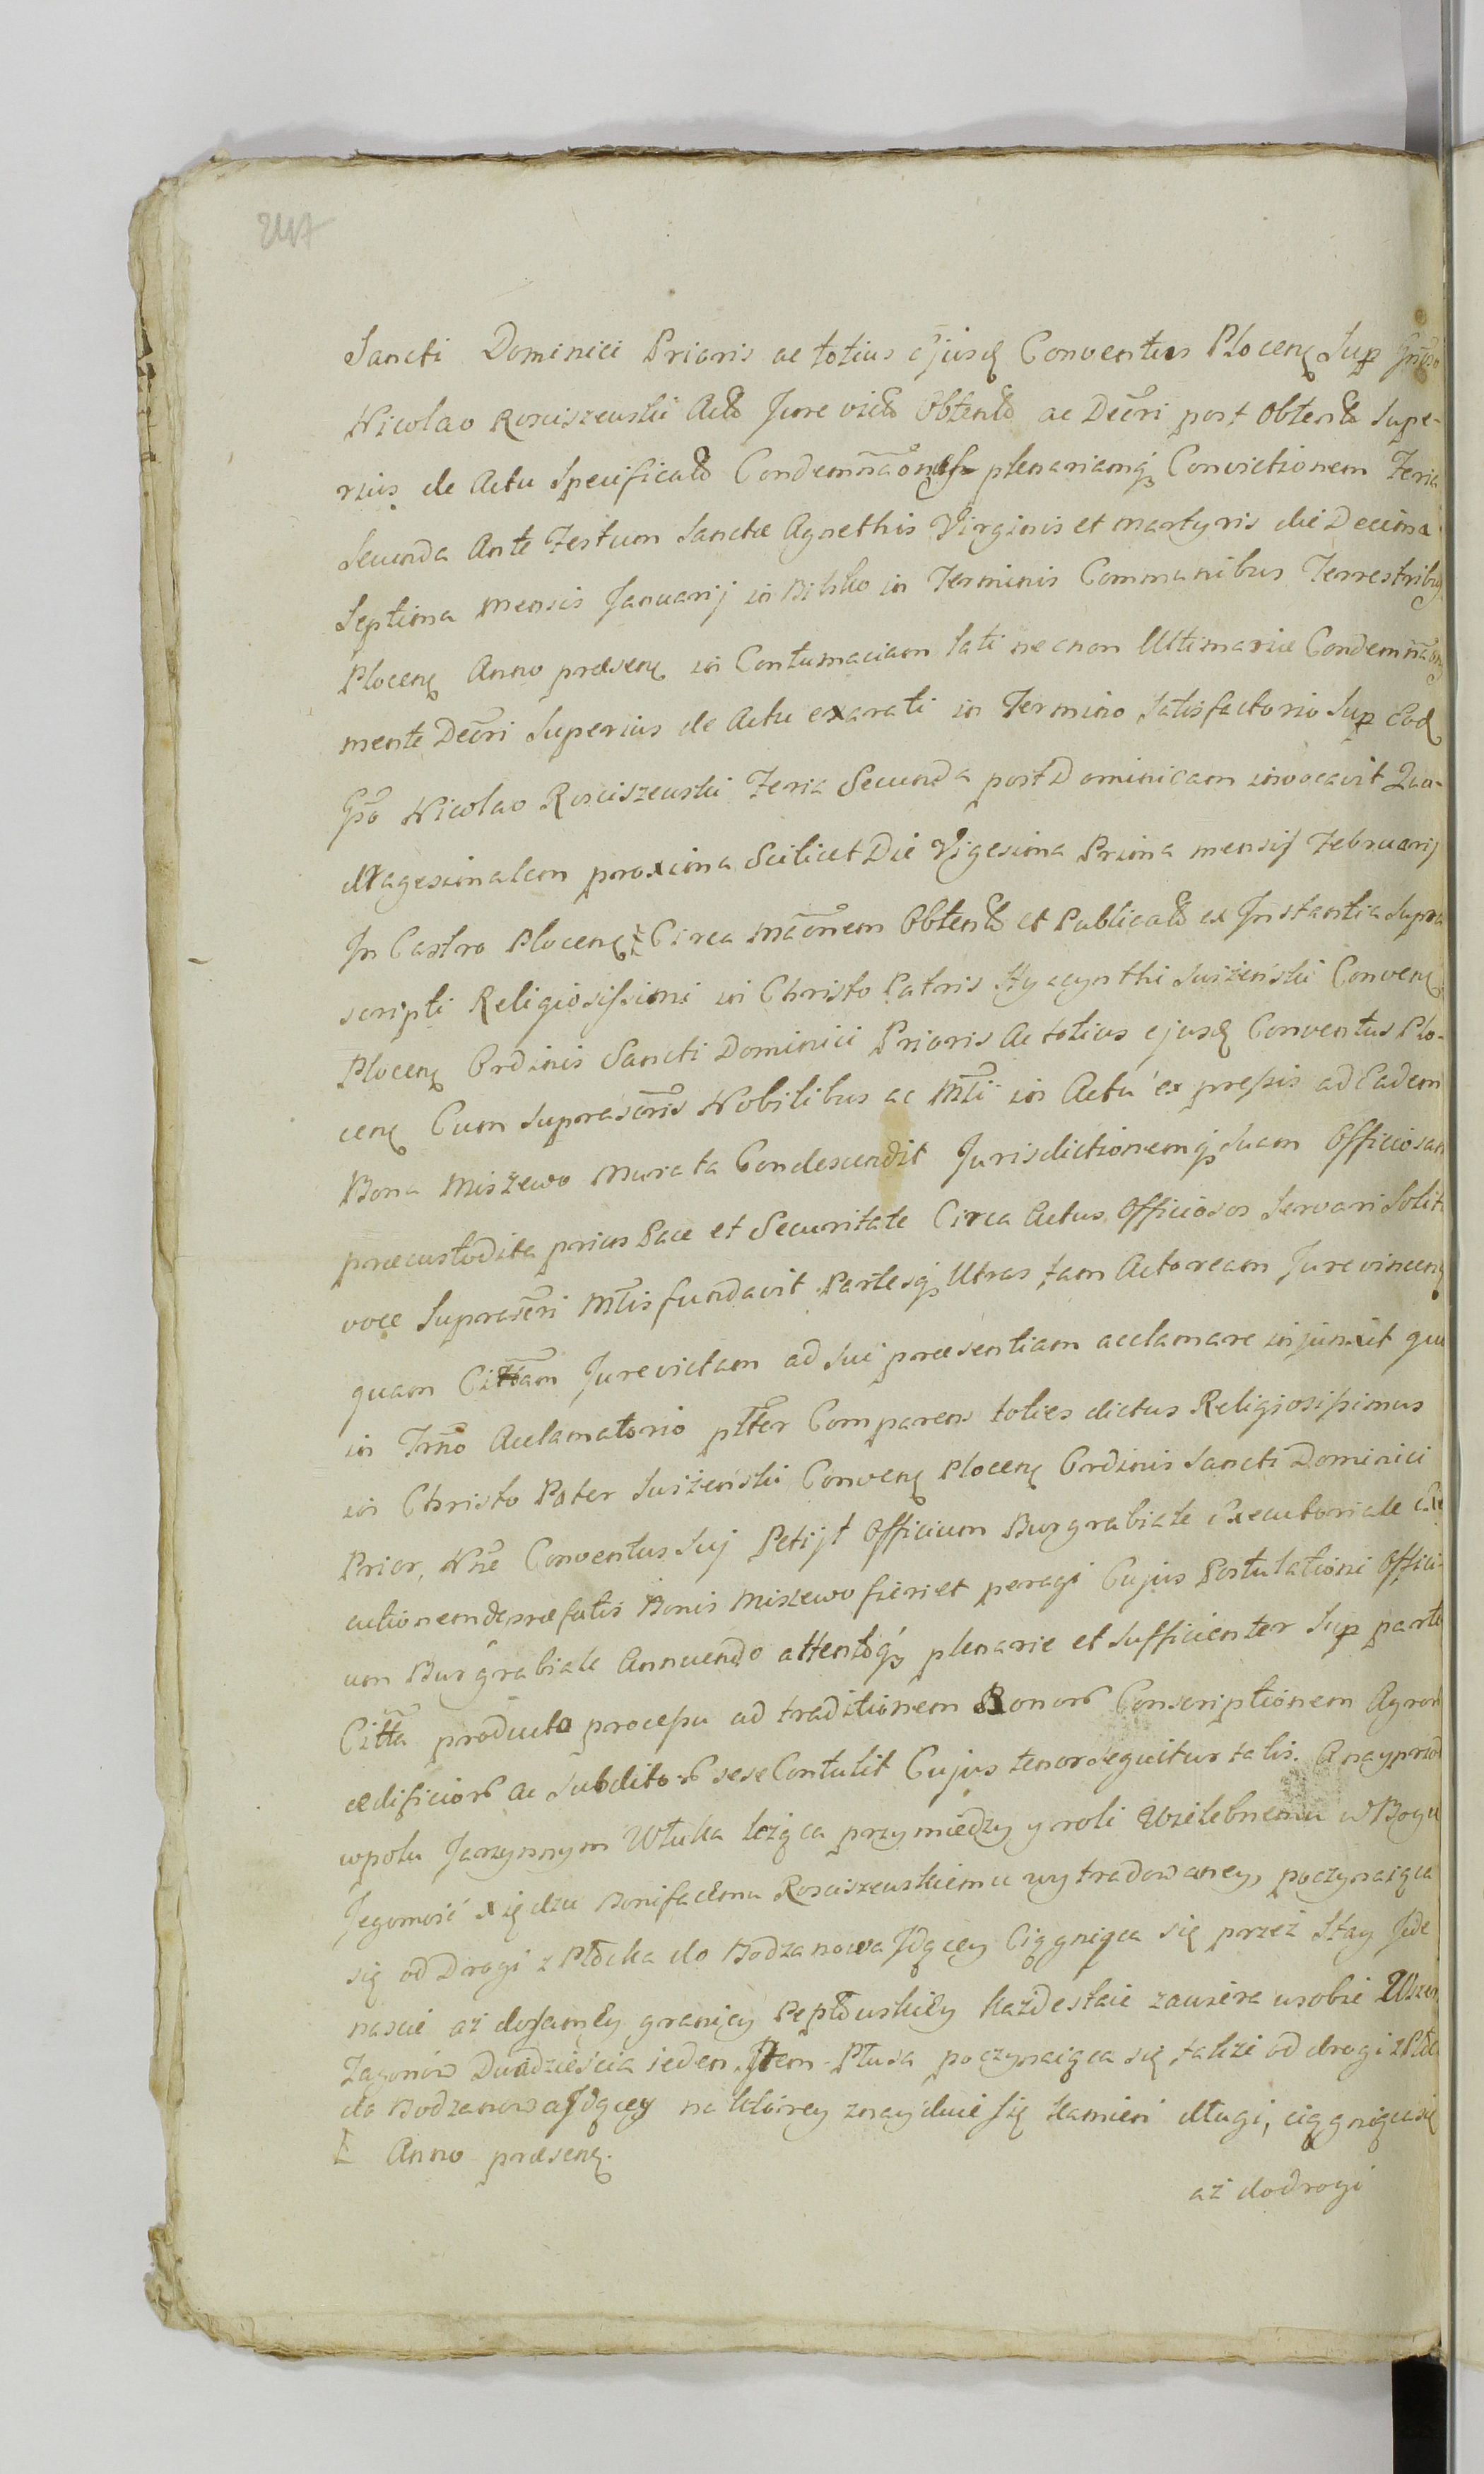 247
Sancti Dominici Prioris ac totius ejusd Conventus Plocen Sup Gnoso
Nicolao Rosciszewski Actô Jure victô Obtentô ac Decri post Obtentâ Supe-
rius de Actu Specificatô Condemnaonis plenariamq Convictionem Feria
Secunda Ante Festum Sanctæ Agnethis Virginis et Martyris die Decima
Septima Mensis Januarij in Bilsko in Terminis Communibus Terrestribus
Plocen Anno præsen in Contumaciam lati necnon Ultimariæ Condemnaonis
mente Decri Superius de Actu exarati in Termino Satisfactorio Sup Eod
Gso Nicolao Rosciszewski Feria Secunda post Dominicam invocavit Qua-
dragesimalem proxima Scilicet Die Vigesima Prima mensis Februarij
In Castro Plocen Circa maonem Obtentô et Publicatô ex Instantia Supra
scripti Religiosissimi in Christo Patris Hyacynthi Suszenski Conven
Plocen Ordinis Sancti Dominici Prioris Ac totius ejusd Conventus Plo-
cen Cum suprascris Nobilibus ac Mtli in Actu expressis ad Eadem
Bona Miszewo Murata Condescendit Jurisdictionemq suam Officiosam
præcustodita prius Pace et Securitate Circa Actus Officiosos Servari Solita
voce Suprascri Mtlis fundavit Partesq Utras tam Actoream Jurevincen
quam Cittam Jurevictam ad sui præsentiam acclamare injunxit qui
in Trno Acclamatorio pltter Comparens toties dictus Religiosissimus
in Christo Pater Suszenski Conven Plocen Ordinis Sancti Dominici
Prior, Nne Conventus Suj Petijt Officium Burgrabiale Executoriale Exe
cutionem de præfatis Bonis Miszewo fieri et peragi Cujus Postulationi Offici-
um Burgrabiale Annuendo attentoq plenarie et sufficienter Sup parte
Citta producto processu ad traditionem Bonor Conscriptionem Agror
ædificior Ac Subditor sese Contulit Cujus tenor sequitur talis. A nayprzod
w polu Jarzynnym Włuka leżąca przy miedzy y roli Wielebnemu w Bogu
Jegomość Xiędzu Bonifacemu Rosciszewskiemu wytradowaney, poczynaiąca
się od Drogi z Płocka do Bodzanowa Jdącey Ciągnąca się przez Stay Jede
nascie aż do samey granicy Peplowskiey każde staie zawiera w sobie Wszer
Zagonów Dwadzieścia ieden. Item Płusa poczynaiąca się także od drogi z Płoc
do Bodzanowa Jdącey na ktorey znayduie się kamień długi, ciągnąca się
Ł Anno præsen.
aż do drogi